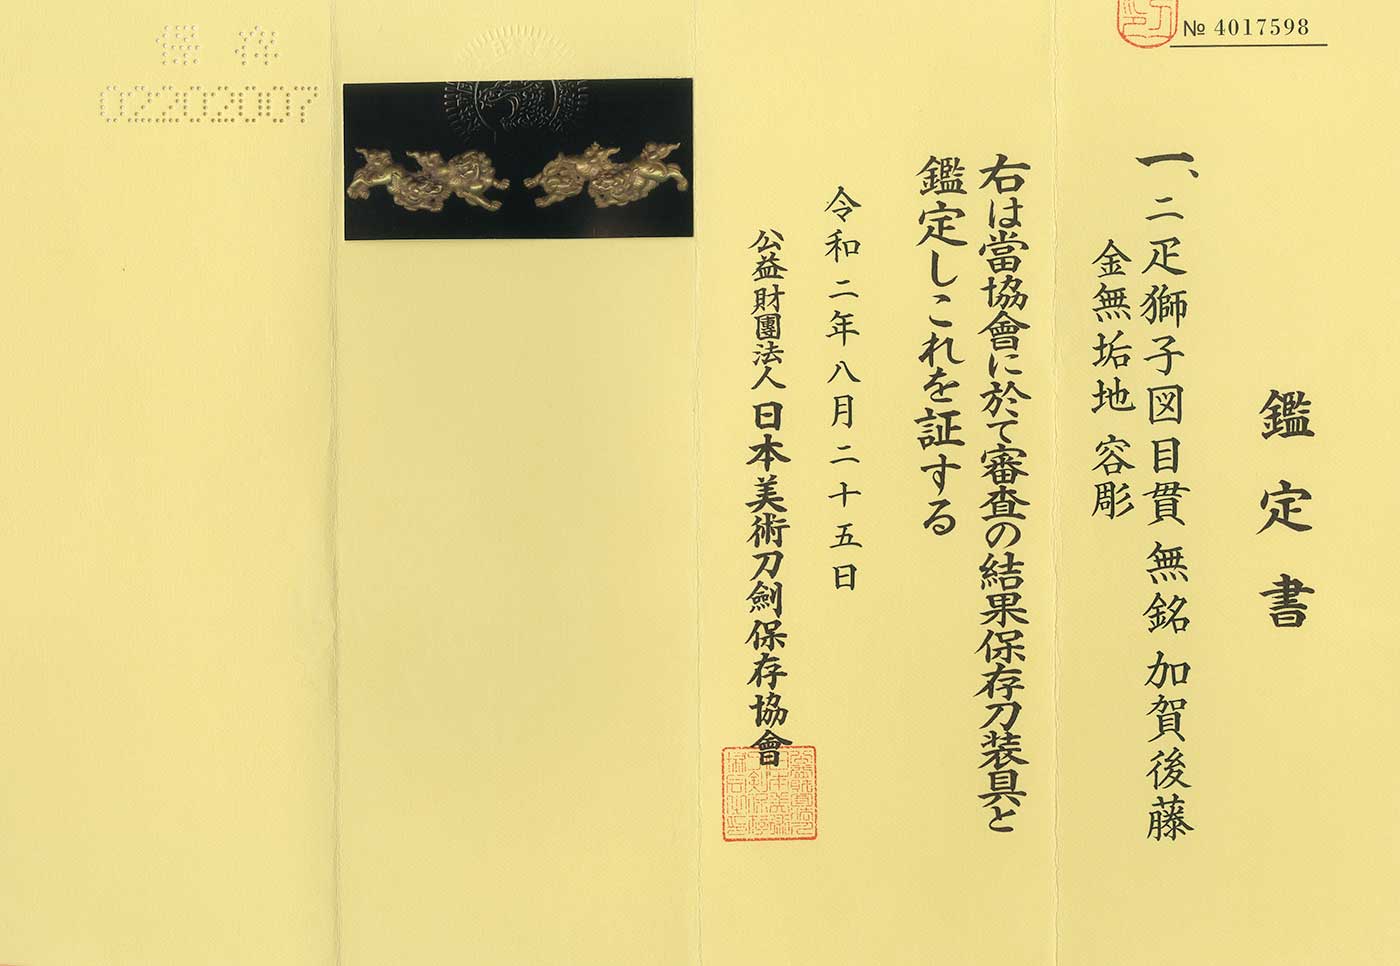 № 4017598
鑑定書
一、二疋獅子図目貫 無銘 加賀後藤
金無垢地 容彫
右は當協會に於て審査の結果保存刀装具と
鑑定しこれを証する
令和二年八月二十五日
公益財團法人 日本美術刀劍保存協會
保存
02202007